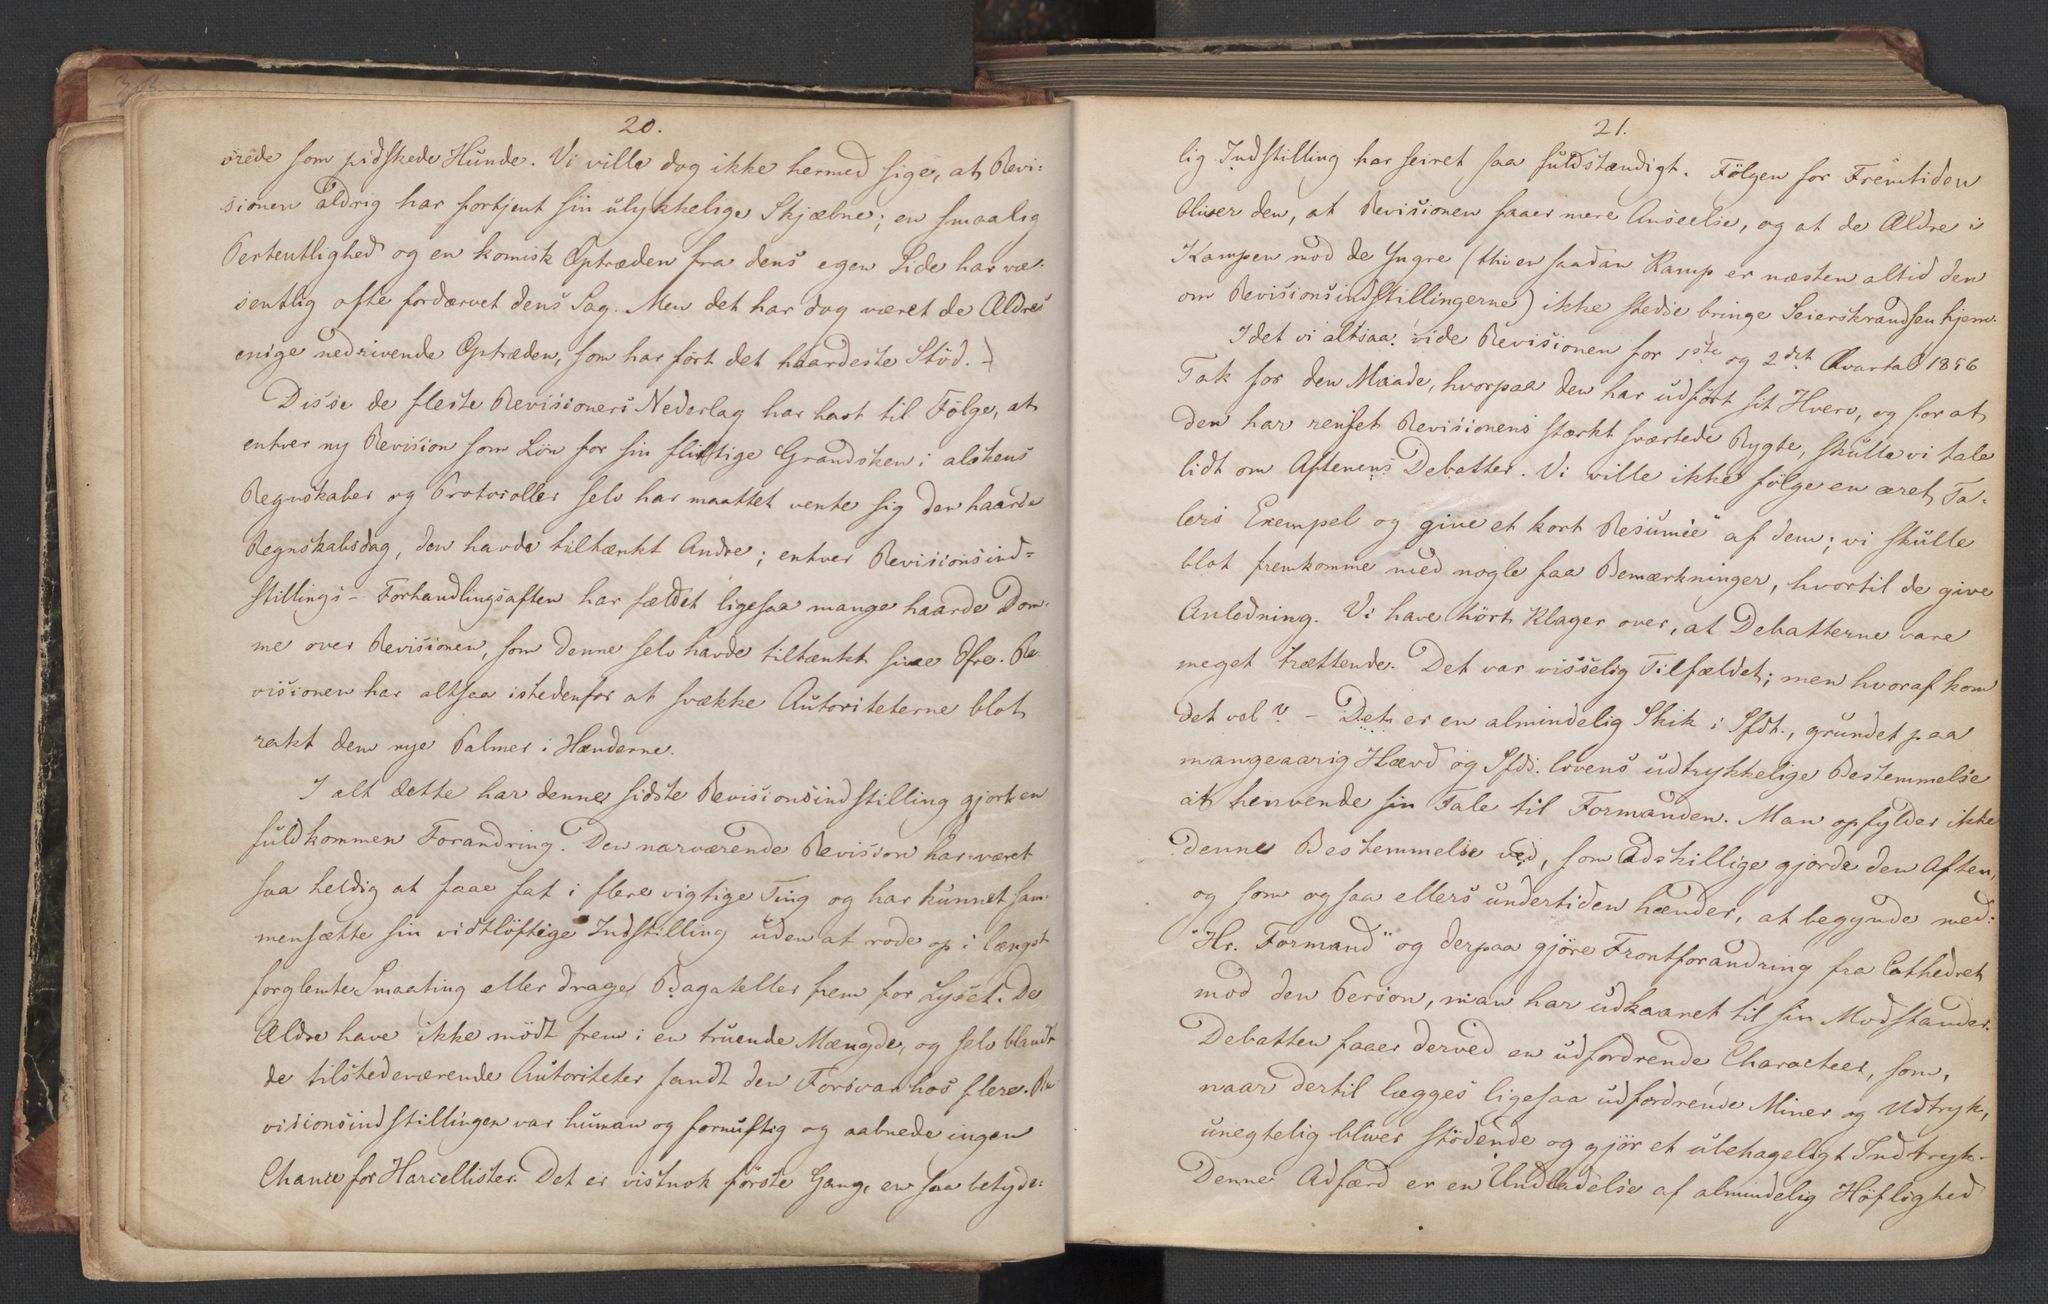 20.
vrede som pidskede Hunde. Vi ville dog ikke hermed sige, at Revi-
sionen aldrig har fortjent sin ulykkelige Skjæbne; en smaalig
Pertentlighed og en komisk Optræden fra dens egen Side har væ-
sentlig ofte fordærvet dens Sag. Men det har dog været de Ældres
enige nedrivende Optræden, som har ført det haardeste Stød.
Disse de fleste Revisioners Nederlag har havt til Følge, at
enhver ny Revision som Løn for sin flittige Grandsken i alskens
Regnskaber og Protocoller selv har maattet vente sig den haarde
Regnskabsdag, den havde tiltænkt Andre; enhver Revisionsind-
stillings-Forhandlingsaften har fældet ligesaa mange haarde Dom-
me over Revisionen, som denne selv havde tiltænkt sine Ofre. Re-
visionen har altsaa istedenfor at svække Autoriteterne blot
rakt dem nye Palmer i Hænderne.
I alt dette har denne sidste Revisionsindstilling gjort en
fuldkommen Forandring. Den nærværende Revision har været
saa heldig at faae fat i flere vigtige Ting og har kunnet sam-
mensætte sin vidtløftige Indstilling uden at rode op i længst
forglemte Smaating eller drage Bagateller frem for Lyset. De
Ældre have ikke mødt frem i en truende Mængde, og selv blandt
de tilstedeværende Autoriteter fandt den Forsvar hos flere. Re-
visionsindstillingen var human og fornuftig og aabnede ingen
Chance for Harcellister. Det er vistnok første Gang, en saa betyde-
21.
lig Indstilling har seiret saa fuldstændigt. Følgen for Fremtiden
bliver den, at Revisionen faaer mere Anseelse, og at de Ældre i
Kampen mod de Yngre (thi en saadan Kamp er næsten altid den
om Revisionsindstillingerne) ikke stedse bringe Seierskrandsen hjem.
Idet vi altsaa vide Revisionen for 1ste og 2det Qvartal 1856
Tak for den Maade, hvorpaa den har udført sit Hverv, og for at
den har renset Revisionens stærkt sværtede Rygte, skulle vi tale
lidt om Aftenens Debatter. Vi ville ikke følge en æret Ta-
lers Exempel og give et kort Resumée" af dem; vi skulle
blot fremkomme med nogle faa Bemærkninger, hvortil de give
Anledning. Vi have hørt Klager over, at Debatterne vare
meget trættende. Det var visselig Tilfældet; men hvoraf kom
det vel? – Det er en almindelig Skik i Sfdt., grundet paa
mangeaarig Hævd og Sfds. lovens udtrykkelige Bestemmelse
at henvende sin Tale til Formanden. Man opfylder ikke
denne Bestemmelse ved, som Adskillige gjorde den Aften,
og som ogsaa ellers undertiden hænder, at begynde med:
"Hr. Formand" og derpaa gjøre Frontforandring fra Cathedret
mod den Person, man har udkaaret til sin Modstander.
Debatten faaer derved en udfordrende Characteer, som,
naar dertil lægges ligesaa udfordrende Miner og Udtryk,
unegtelig bliver stødende og gjør et ubehageligt Indtryk.
Denne Adfærd er en Undladelse af almindelig Høflighed